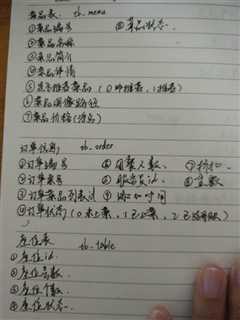 菜品表: tb_menu
①菜品编号 ⑧菜品状态
②菜品名称
③菜品简介
④菜品详情
⑤是否推荐菜品（0不推荐，1推荐）
⑥菜品图像路径
⑦菜品价格
订单信息: tb_order
①订单编号 ⑥用餐人数 ⑦
②订单桌号 服务员id
③订单菜品列表 添加时间
④订单状态（0未上菜，1已上菜，2已结账）
座位表 tb_table
①座位id
②座位
③座位个数
④座位状态